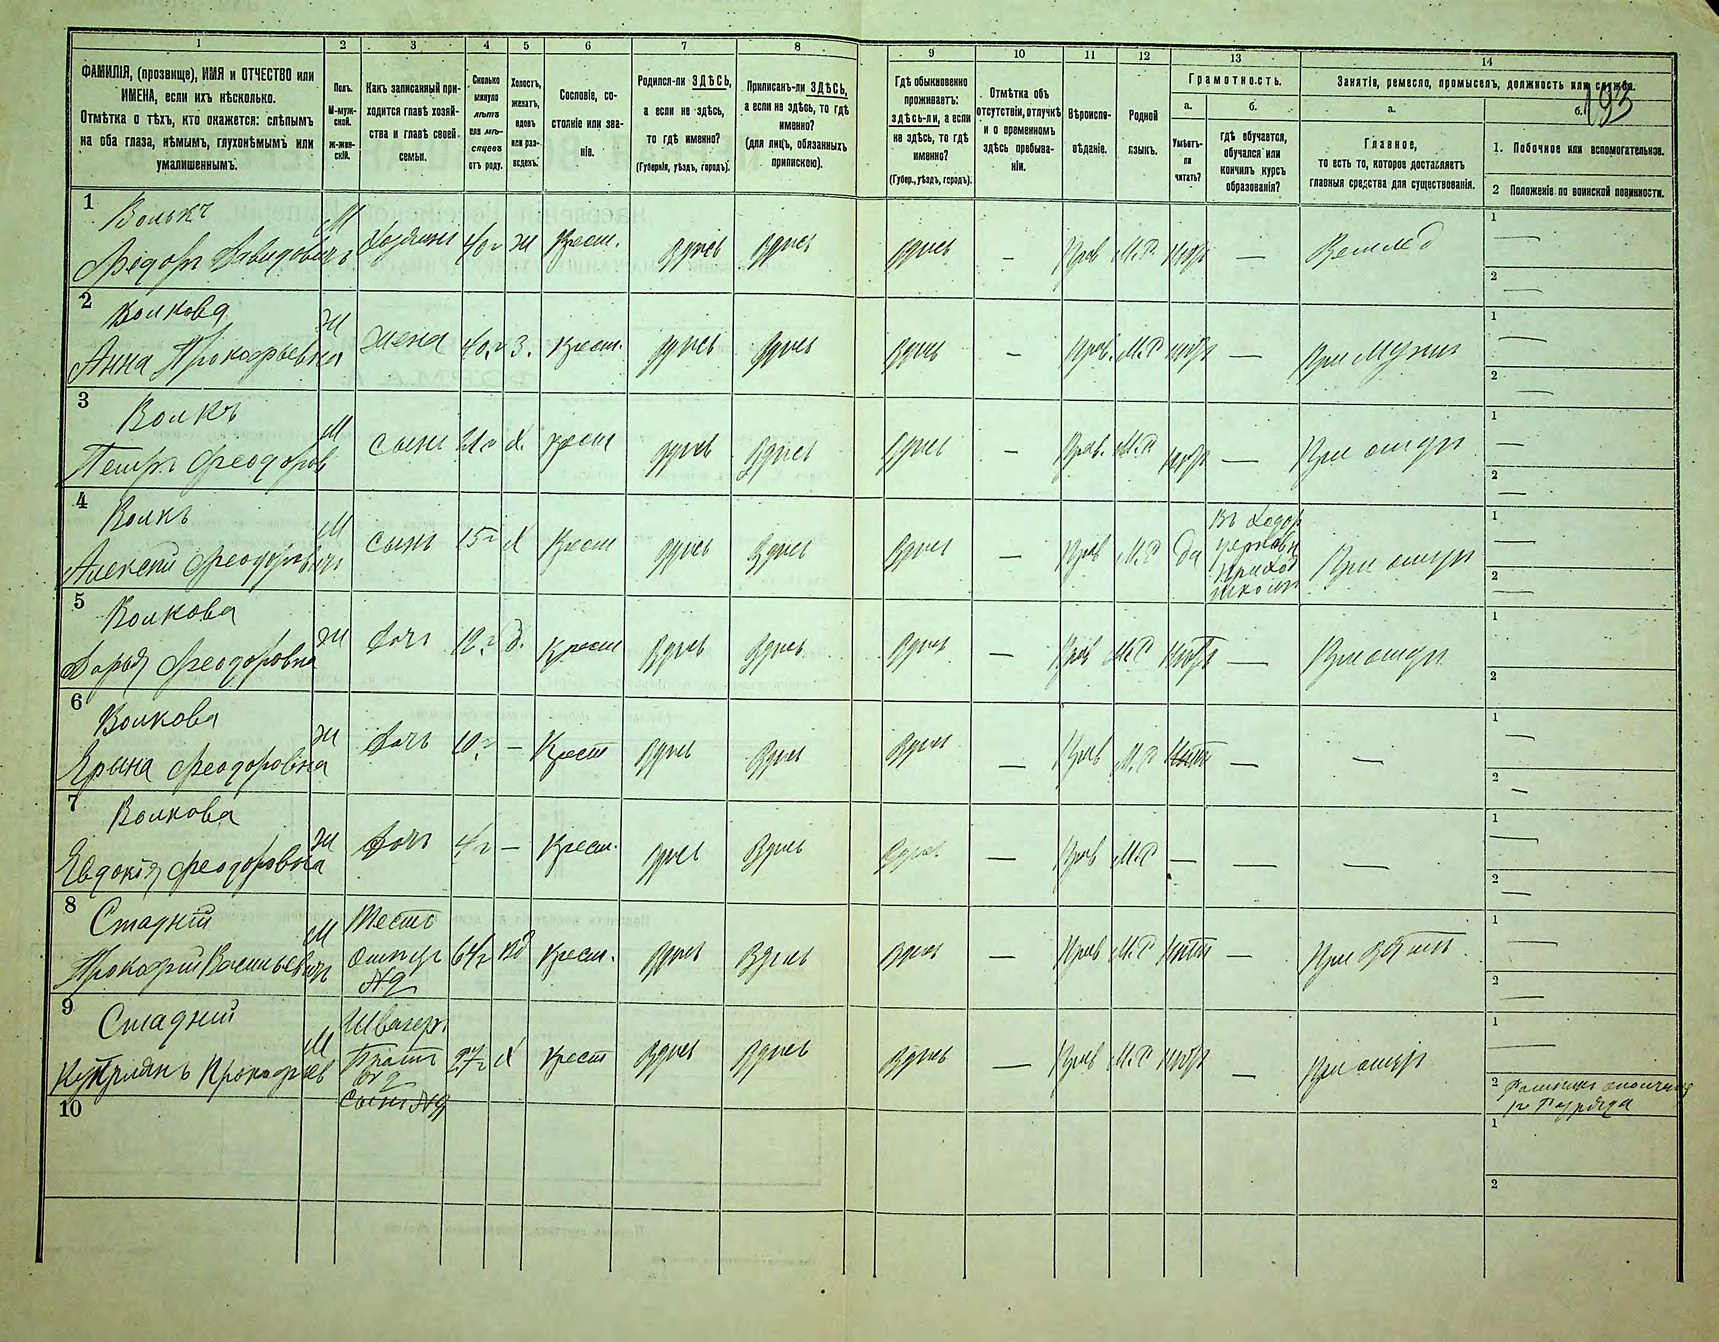 193
1 2 3 4 5 6 7 8 9 10 11 12 13 14
ФАМИЛІЯ, (прозвище), ИМЯ и ОТЧЕСТВО или
ИМЕНА, если ихъ нѣсколько.
Отмѣтка о тѣхъ, кто окажется: слѣпымъ
на оба глаза, нѣмымъ, глухонѣмымъ или
умалишеннымъ.
Полъ.
М-муж-
ской.
ж-жен-
скій.
Какъ записанный при-
ходится главѣ хозяй-
ства и главѣ своей
семьи.
Сколько
минуло
лѣтъ
или мѣ-
сяцевъ
отъ роду.
Холостъ,
женатъ,
вдовъ
или раз-
веденъ.
Сословіе, со-
стояніе или зва-
ніе.
Родился-ли ЗДѢСЬ,
а если не здѣсь,
то гдѣ именно?
(Губернія, уѣздъ, городъ).
Приписанъ-ли ЗДѢСЬ,
а если не здѣсь, то гдѣ
именно?
(для лицъ, обязанныхъ
припискою).
Гдѣ обыкновенно
проживаетъ:
здѣсь-ли, а если
не здѣсь, то гдѣ
именно?
(Губер., уѣздъ, городъ).
Отмѣтка объ
отсутствіи, отлучкѣ
и о временномъ
здѣсь пребыва-
ніи.
Вѣроиспо-
вѣданіе.
Родной
языкъ.
Грамотность.
а.
Умѣетъ-
ли
читать?
б.
гдѣ обучается,
обучался или
кончилъ курсъ
образованія?
Занятіе, ремесло, промыселъ, должность или служба.
а.
Главное,
то есть то, которое доставляетъ
главныя средства для существованія.
б.
1. Побочное или вспомогательное.
2 Положеніе по воинской повинности.
1 Волкъ
Федоръ Давидовичъ М Хозяинъ 40 г ж Крест. Здѣсь Здѣсь Здѣсь — Прав М.Р. нѣтъ — Землед 1 — 2 —
2 Волкова
Анна Прокофьевна ж жена 40 г З. Крест. Здѣсь Здѣсь Здѣсь — Прав. М.Р нѣтъ — При мужи 1 — 2 —
3 Волкъ
Петръ Феодоров М сынъ 21 г Х. крест Здѣсь Здѣсь Здѣсь — Прав. М.Р нѣтъ — При отцѣ 1 — 2 —
4 Волкъ
Алексей Феодоровичъ М сынъ 15 г Х Крест Здѣсь Здѣсь Здѣсь — Прав М.Р да
церковн
приход
школѣ
При отцѣ 1 — 2 —
5 Волкова
Дарья Феодоровна ж дочь 12 г д. Крест Здѣсь Здѣсь Здѣсь — Прав М.Р нѣтъ — При отцѣ 1 2
6 Волкова
Ярына Феодоровна ж дочь 10 г — Крест Здѣсь Здѣсь Здѣсь — Прав М.Р нѣтъ — — 1 — 2 —
7 Волкова
Явдокія Феодоровна ж дочь 4 г — Крест. Здѣсь Здѣсь Здѣсь — Прав М.Р — — — 1 — 2 —
8 Стадній
Прокофий Васильевичъ М Тесть
№2 64 г Вд Крест. Здѣсь Здѣсь Здѣсь — Прав М.Р нѣтъ — При зятѣ 1 — 2 —
9 Стадний
Куприянъ Прокофьев М Швагеръ
Братъ
№2
сынъ №8 27 г Х Крест Здѣсь Здѣсь Здѣсь — Прав М.Р нѣтъ — При отцѣ 1 — 2 Ратникъ ополчен
1г Разряда
10 1 2